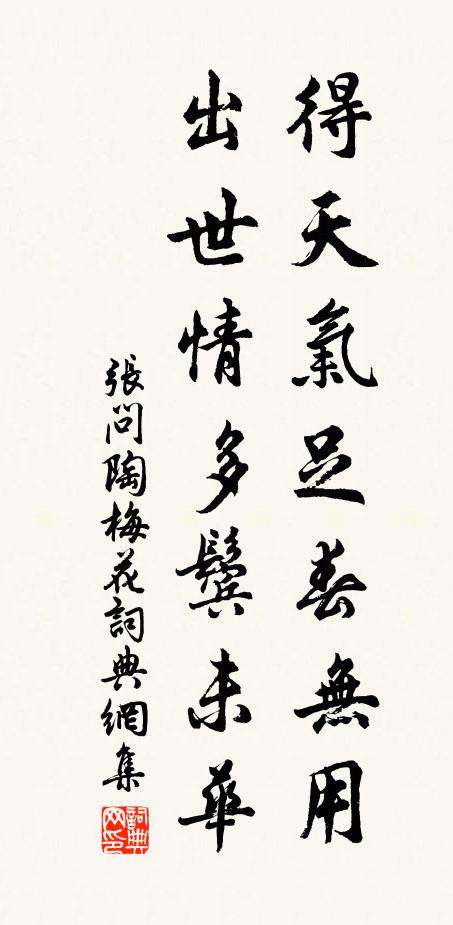 得天氣足春無用
出世情多鬢未華
張問陶梅花詞典網集
詞典网印